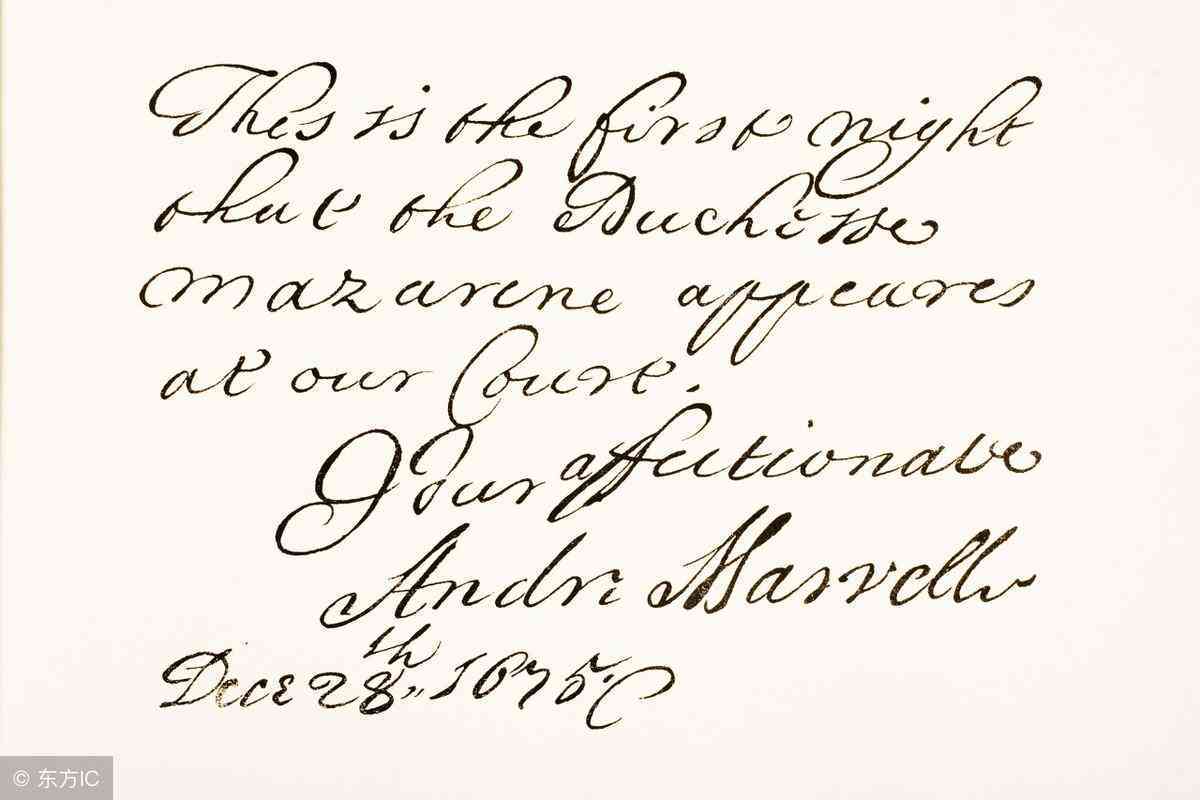 This is the first night
that the Duchesse
Mazarine appeares
at our Court.
Your affectionate
Andr: Marvell
Dece 28th 1675.
© 东方IC